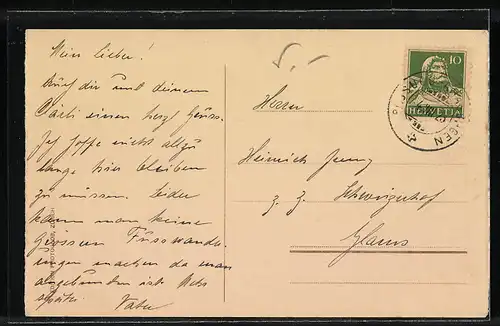 Mein lieber!
Auch dir und deinem
Bärli einen herzl Gruss.
Ich hoffe nicht allzu
lange hier bleiben
zu müssen. Leider
kann man keine
grossen Fusswande-
rungen machen da man
angebunden ist. Mehr
später. Vater
5.-
Herrn
Heinrich Jenny
z. Z. Schweizerhof
Glarus
10
HELVETIA